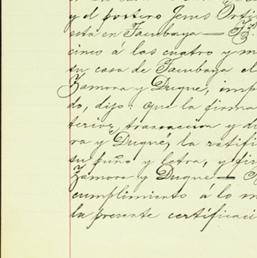 y el portero Jenes Ortiz
está en Tacubaya —
cinco á las cuatro y m
su casa de Tacubaya el
Zamora y Duque, imp
do, dijo: que la firma
terior, transaccion y di
ra y Duque, la ratifi
su puño y letra, y fir
Zamora y Duque —
cumplimiento á lo m
la presente certificaci